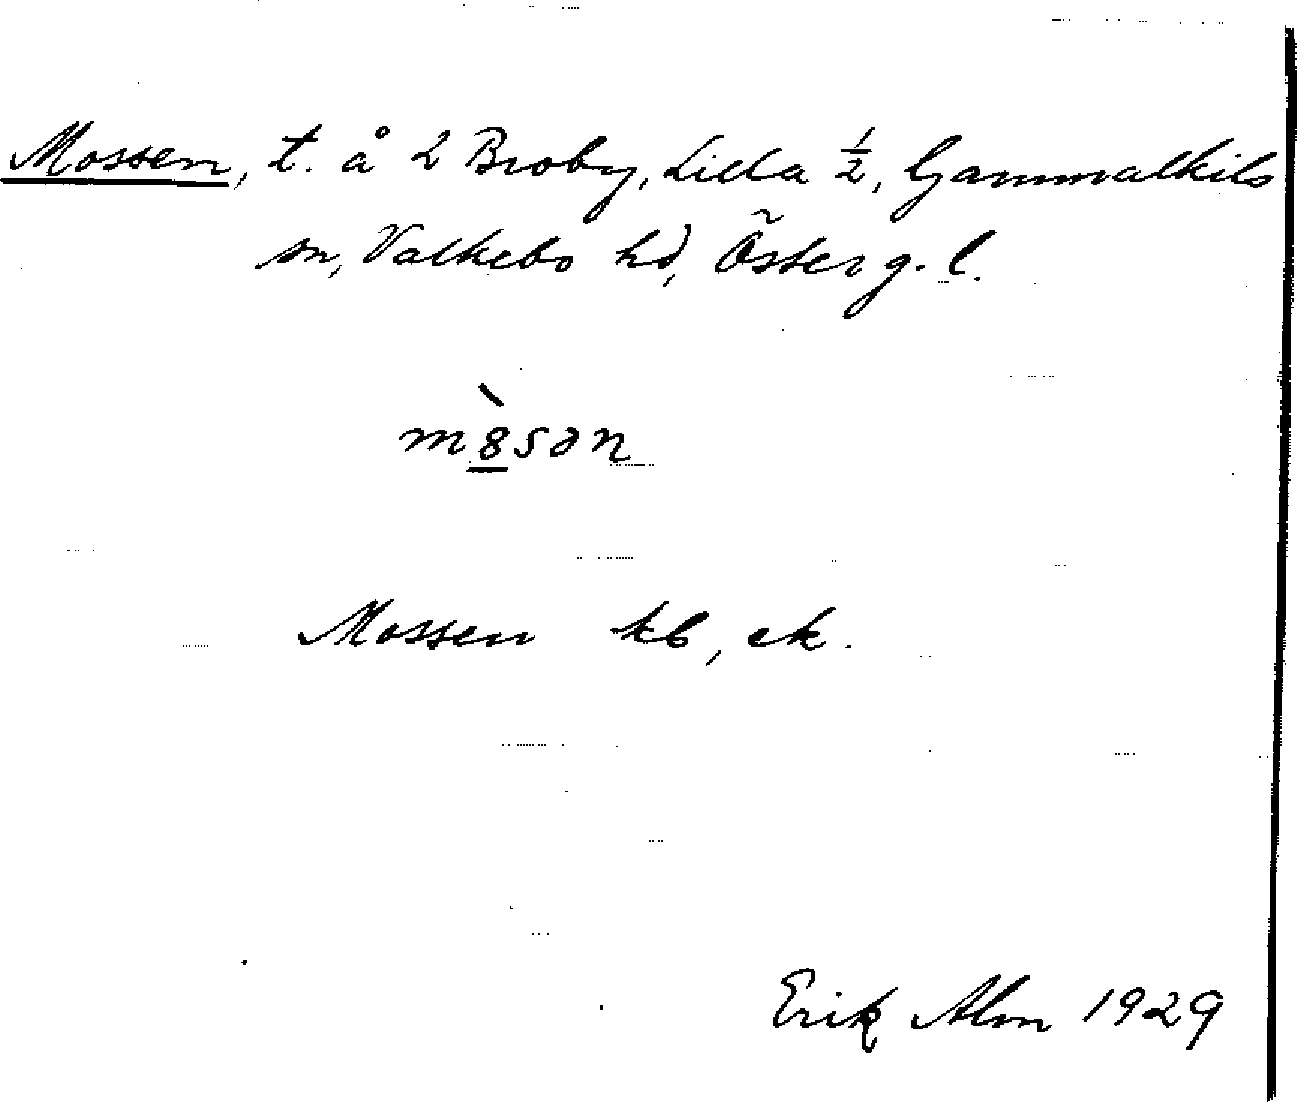 Mossen, t. å 2 Broby, Lilla ½, Gammalkils
sn, Valkebo hd, Österg. l.
m8̲̀sən
Mossen kb, ek.
Erik Alm 1929